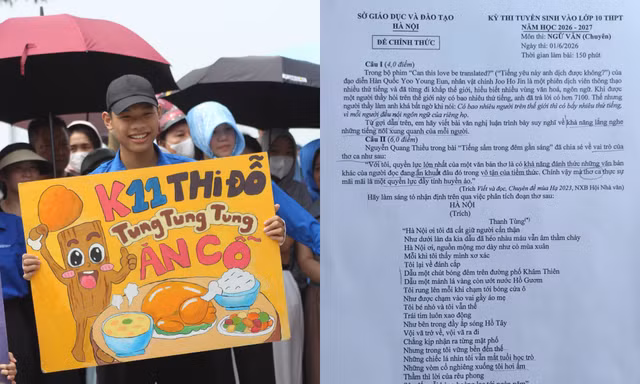 K11 THI ĐỖ
Tung Tung Tung
ĂN CỖ
SỞ GIÁO DỤC VÀ ĐÀO TẠO
HÀ NỘI
ĐỀ CHÍNH THỨC
KỲ THI TUYỂN SINH VÀO LỚP 10 THPT
NĂM HỌC 2026 - 2027
Môn thi: NGỮ VĂN (Chuyên)
Ngày thi: 01/6/2026
Thời gian làm bài: 150 phút
Câu I (4,0 điểm)
Trong bộ phim "Can this love be translated?" ("Tiếng yêu này anh dịch được không?") của
đạo diễn Hàn Quốc Yoo Young Eun, nhân vật chính Joo Ho Jin là một phiên dịch viên thông thạo
nhiều thứ tiếng và đã từng đi khắp thế giới, hiểu biết nhiều vùng văn hoá, ngôn ngữ. Khi được
một người thầy hỏi trên thế giới này có bao nhiêu thứ tiếng, anh đã trả lời có hơn 7100. Thế nhưng
người thầy làm anh khá bất ngờ khi nói: Có bao nhiêu người trên thế giới thì có bấy nhiêu thứ tiếng,
vì mỗi người đều nói ngôn ngữ của riêng họ.
Từ gợi dẫn trên, em hãy viết bài văn nghị luận trình bày suy nghĩ về khả năng lắng nghe
những tiếng nói xung quanh của mỗi người.
Câu II (6,0 điểm)
Nguyễn Quang Thiều trong bài "Tiếng sấm trong đêm gần sáng" đã chia sẻ về vai trò của
thơ ca như sau:
"Với tôi, quyền lực lớn nhất của một văn bản thơ là có khả năng đánh thức những văn bản
khác của người đọc đang ẩn khuất đâu đó trong vô tận của tiềm thức. Chính vậy mà thơ ca thực sự
mãi mãi là một quyền lực đầy tính huyền ảo."
(Trích Viết và đọc, Chuyên đề mùa Hạ 2023, NXB Hội Nhà văn)
Hãy làm sáng tỏ nhận định trên qua việc phân tích đoạn thơ sau:
HÀ NỘI
(Trích)
Thanh Tùng(*)
"Hà Nội ơi tôi đã cất giữ người cẩn thận
Như dưới làn da kia dấu đã héo nhàu vẫn âm thầm chảy
Hà Nội ơi, nguồn mộng mơ dày như cỏ mùa xuân
Mỗi khi tôi thấy mình xơ xác
Tôi lại về đánh cắp
Dẫu một chút bóng đêm trên đường phố Khâm Thiên
Dẫu một mảnh lá vàng còn ướt nước Hồ Gươm
Tôi rung lên mỗi khi chạm tới bóng cửa ô
Như được chạm vào vai gầy áo mẹ
Tôi bé nhỏ và tôi vẫn thế
Trái tim luôn xao động
Như bên trong đầy ắp sóng Hồ Tây
Vội vã trở về, vội vã ra đi
Chẳng kịp nhận ra từng mặt phố
Nhưng trong tôi vững bền đến thế
Những chiếc lá nhìn tôi vẫn mắt tuổi học trò
Những vòm cổ nghiêng xuống tôi hơi ấm
Thầm thì lời của rêu phong